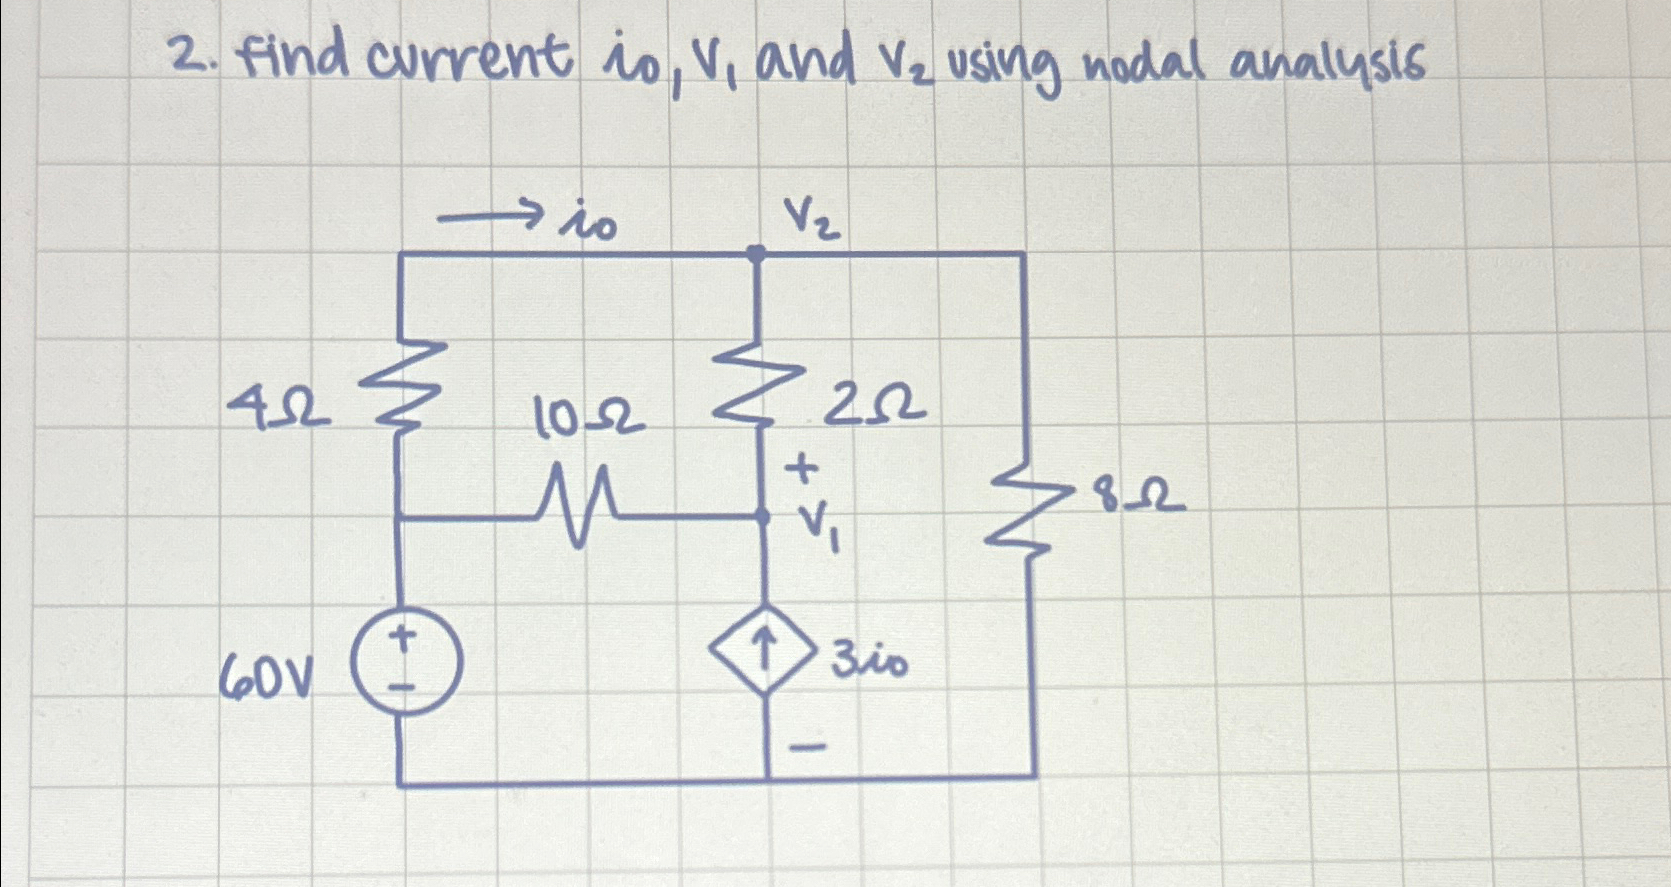 2. find current io, V1 and V2 using nodal analysis
→ io V2
4Ω 10Ω 2Ω
+
V1 8Ω
+
60V 3io
-
-